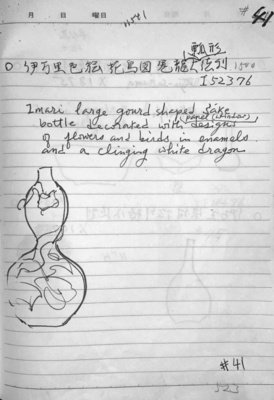 月 日 曜日
#41
瓢形
○ 伊万里色絵 花鳥図 巻龍大徳利 1500
I52376
Imari large gourd shaped sake
bottle decorated with designs
(panel (window)
of flowers and birds in enamels
and a clinging white dragon
#41
523